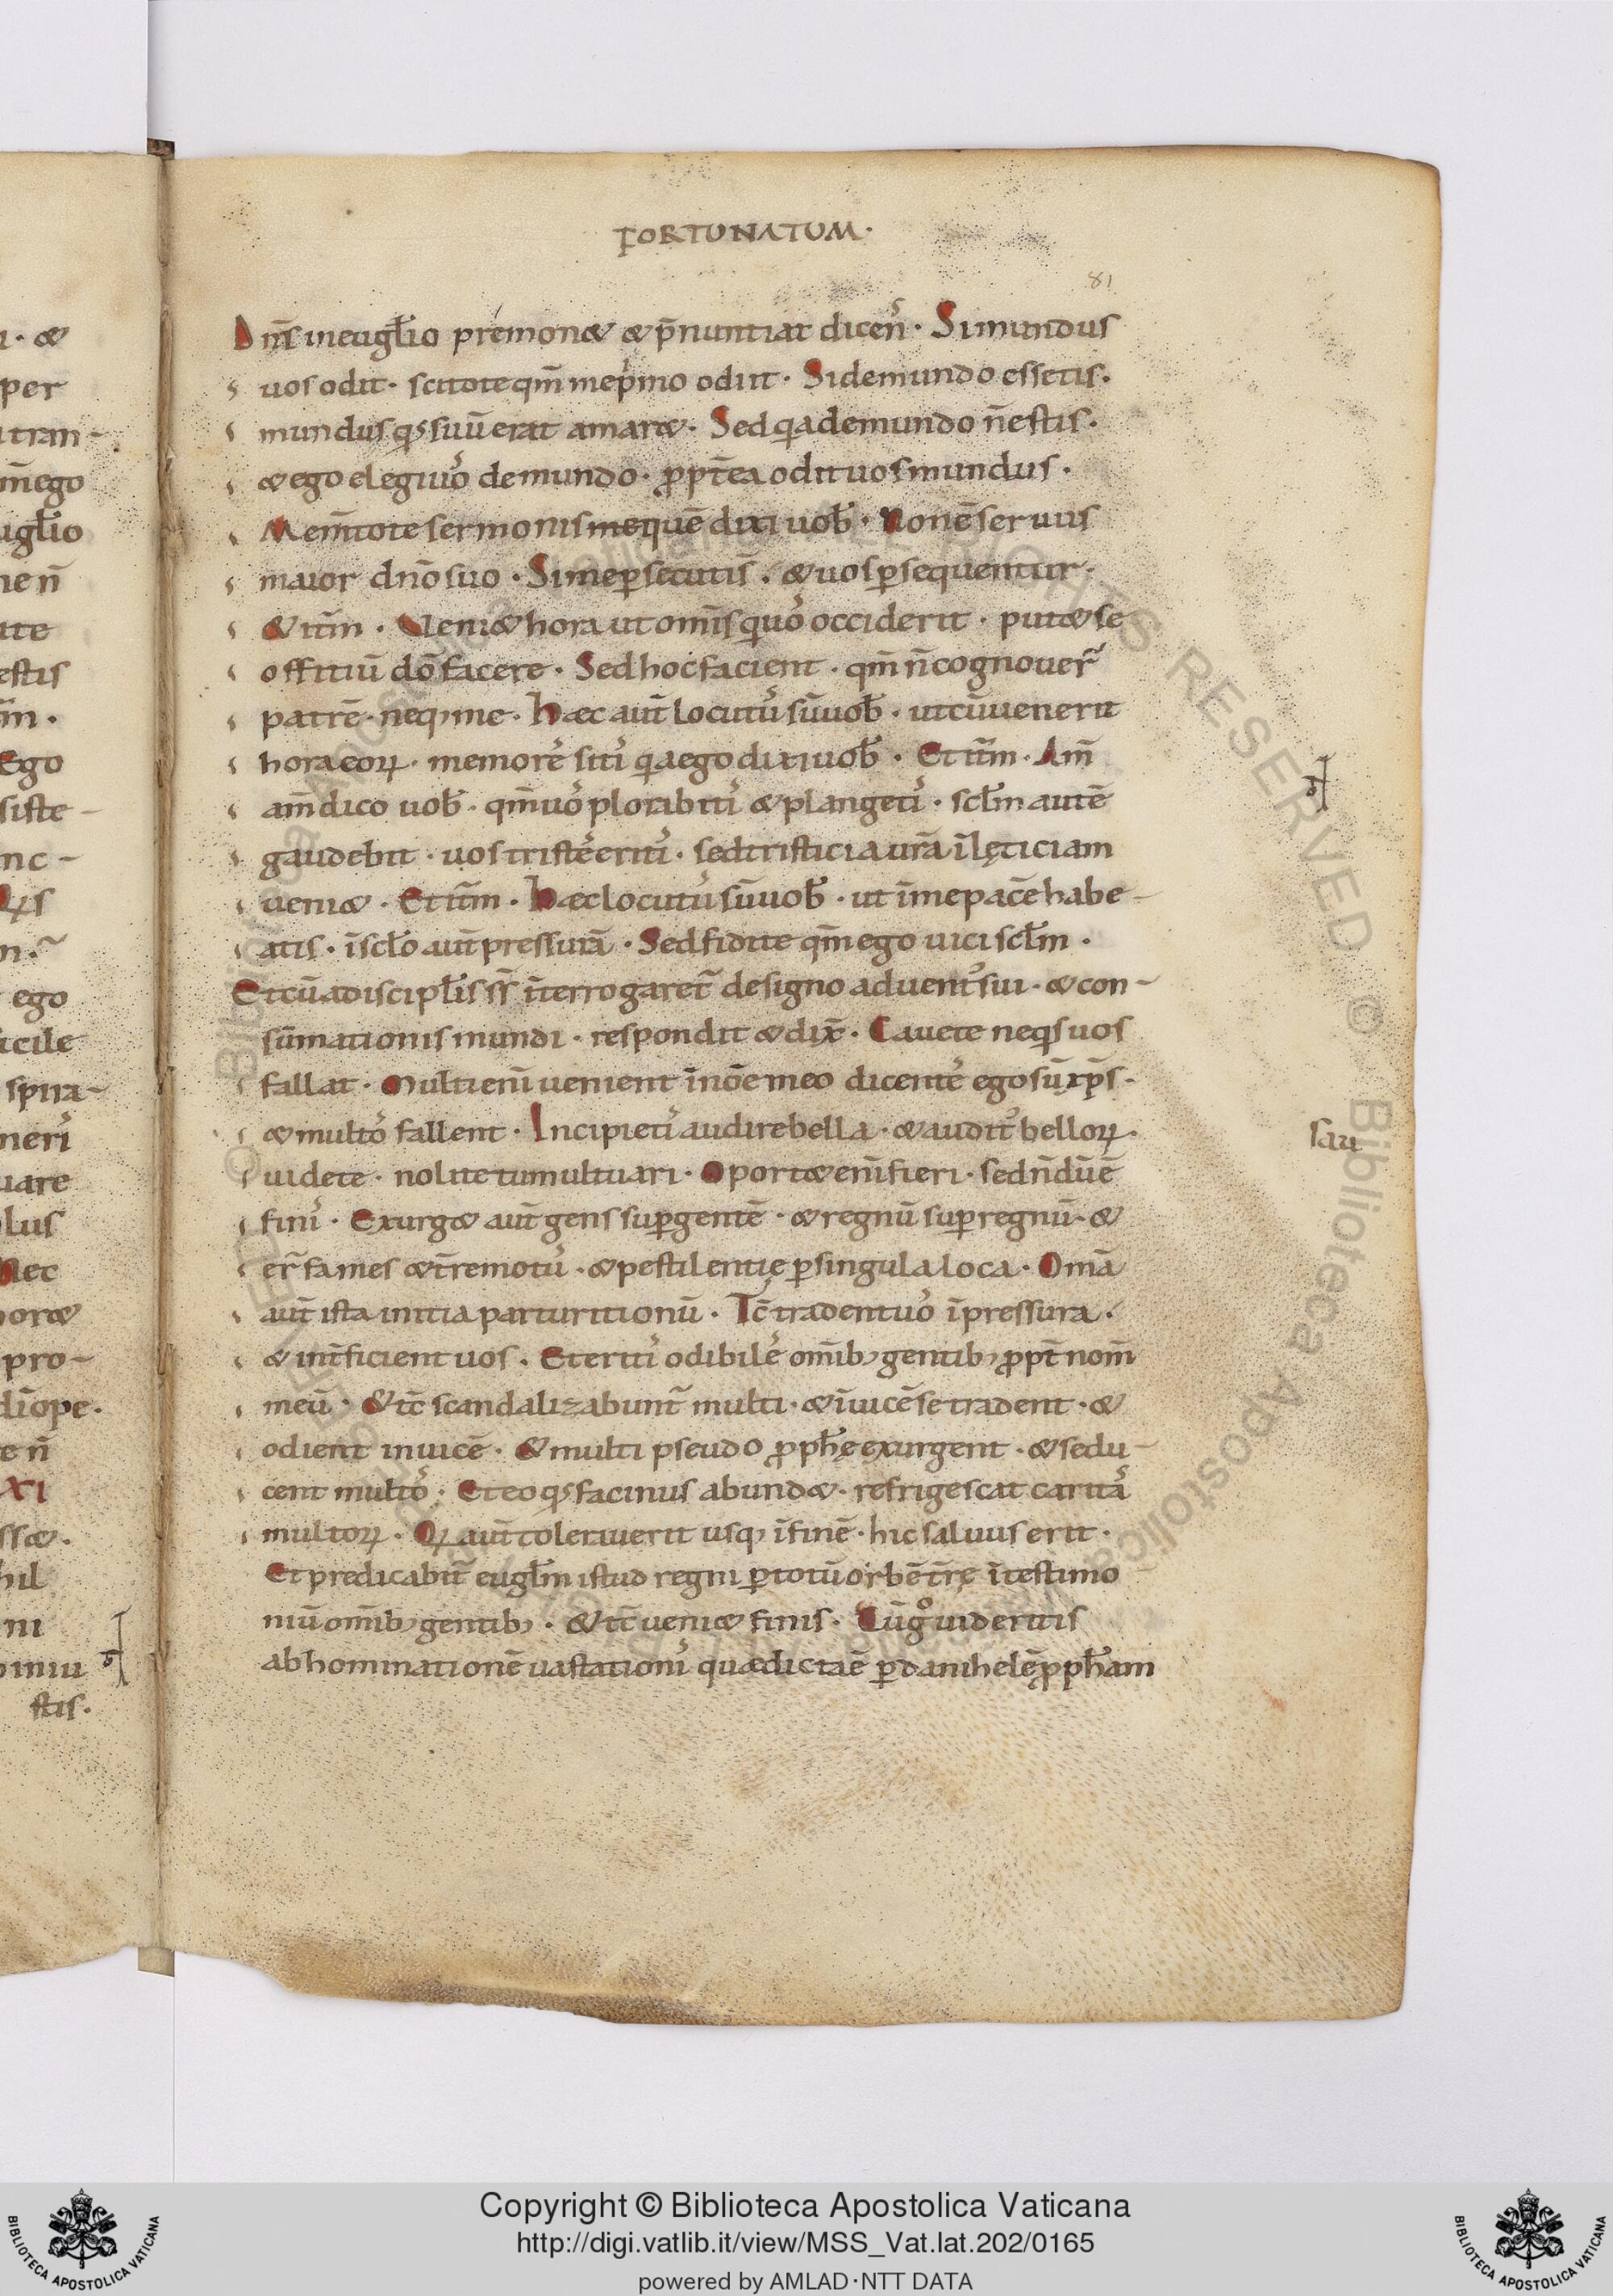 FORTUNATUM·
81
Dn̄s in eugl̄io premonet & p̄nuntiat dicen̄s· Si mundus
uos odit· scitote qm̄ me p̍mo odiit· Si de mundo essetis·
mundus qs suū erat amaret· Sed q̍a de mundo n̄ estis·
& ego elegi uos de mundo· ꝓpt̄ea odit uos mundus·
Mem̄tote sermonis me quē dixi uob̄· Non ē seruus
maior dn̄o suo· Si me ꝑsecuti s̄· & uos ꝑsequentur·
& itm̄· Ueniet hora ut omīs qui uos occiderit· putet se
offitiū dō facere· Sed hoc facient· qm̄ n̄ cognouer̄
patrē· neq; me· Hæc aut̄ locutus sū uob̄· ut cū uenerit
hora eoꝝ· memores sitis q̍a ego dixi uob̄· Et itm̄· Am̄
am̄ dico uob̄· qm̄ uos plorabitis & plangetis· scl̄m autē
gaudebit· uos tristes eritis· sed tristicia urā ī lęticiam
ueniet· Et itm̄· Hæc locutus sū uob̄· ut ī me pacē habe-
atis· ī scl̄o aut̄ pressurā· Sed fidite qm̄ ego uici scl̄m·
Et cū a discipl̄is s̄s̄ īterrogaret̄ de signo aduentus sui· & con-
sūmationis mundi· respondit & dix̄· Cauete ne qs uos
fallat· Multi eni uenient ī nōe meo dicentes ego sū xp̄s·
& multos fallent· Incipietis audire bella· & auditus belloꝝ·
uidete· nolite tumultuari· Oportet eni fieri· sed n̄dū ē
finis· Exurget aut̄ gens suꝑ gentē· & regnū suꝑ regnū· &
er̄ fames & t̄remotus· & pestilentię ꝑ singula loca· Om̄a
aut̄ ista initia parturitionū· Tc̄ tradent uos ī pressura·
& int̄ficient uos· Et eritis odibiles om̄ib; gentib; ꝓpt̄ nom̄
meū· & tc̄ scandalizabunt̄ multi· & īuicē se tradent· &
odient inuicē· & multi pseudo ꝓph̄ę exurgent· & sedu-
cent multos· Et eo qs facinus abundet· refrigescat caritas
multoꝝ· Qꝝ aut̄ tolerauerit usq; ī finē· hic saluus erit·
Et predicabit̄ eugl̄m istud regni ꝑ totū orbē t̄rę ī testimo
niū om̄ib; gentib;· & tc̄ ueniet finis· Cū gͦ uideritis
abhominationē uastationis quæ dicta ē ꝑ danihelē ꝓph̄am
sau
Copyright © Biblioteca Apostolica Vaticana
http://digi.vatlib.it/view/MSS_Vat.lat.202/0165
powered by AMLAD·NTT DATA
BIBLIOTECA APOSTOLICA VATICANA
BIBLIOTECA APOSTOLICA VATICANA